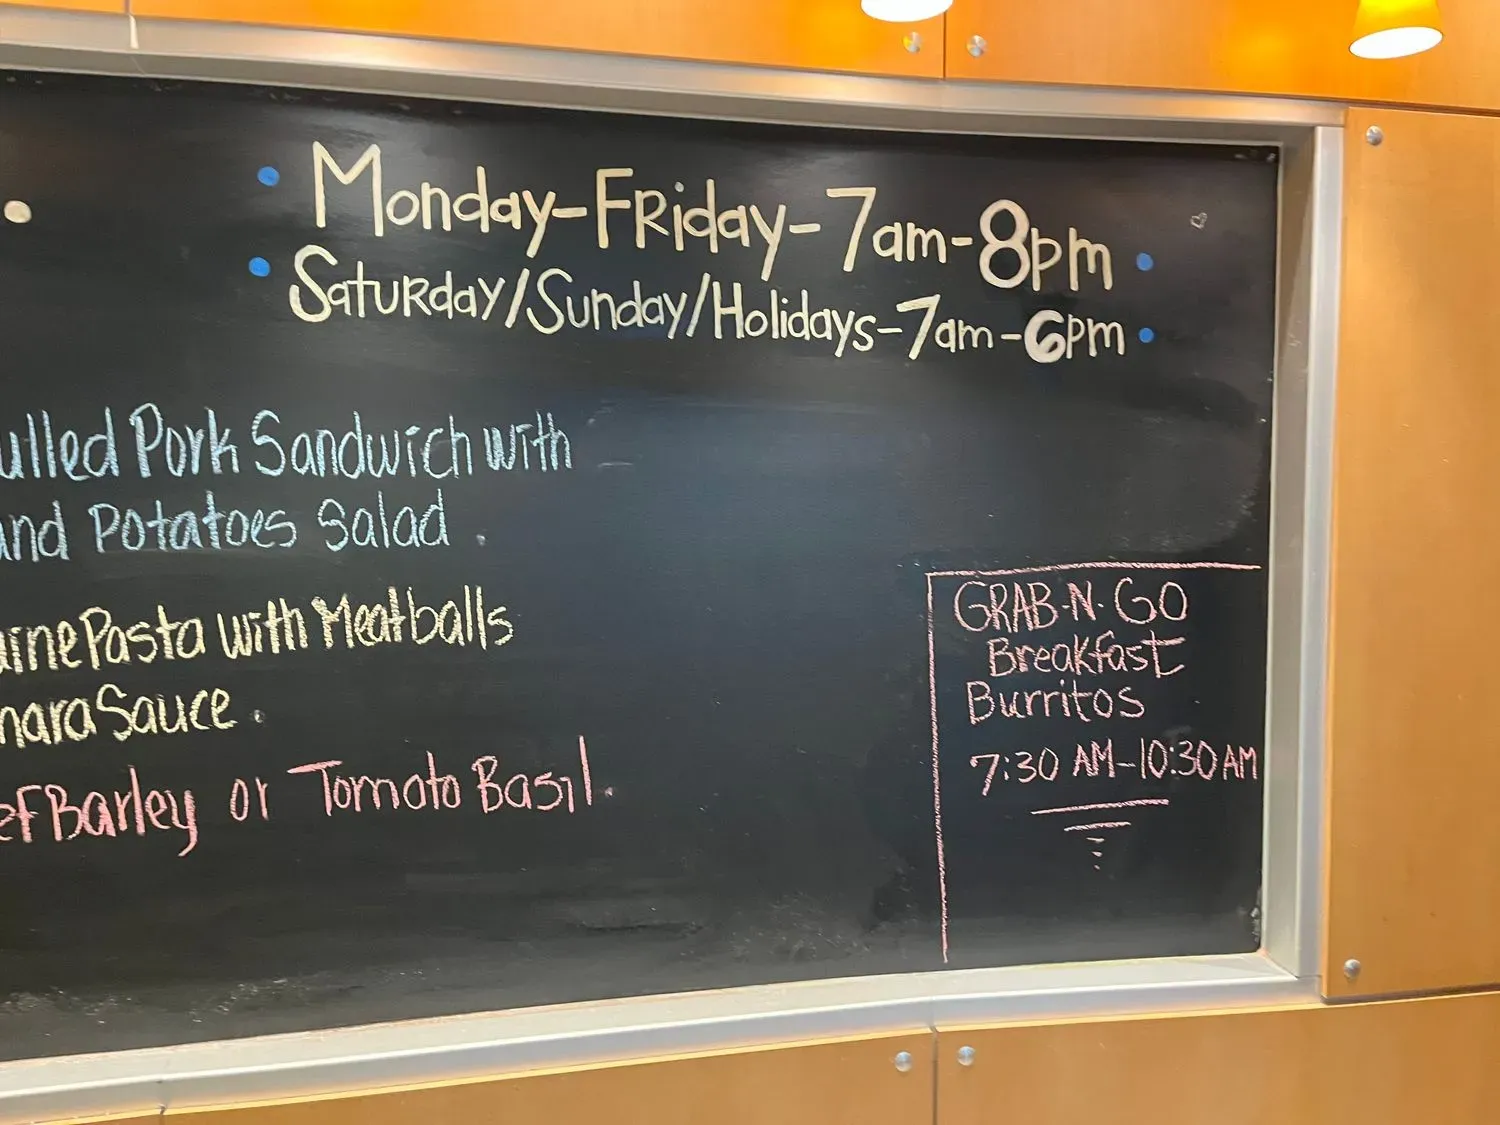 Monday-Friday-7am-8pm
Saturday/Sunday/Holidays-7am-6pm
ulled Pork Sandwich with
and Potatoes Salad.
Pasta with Meatballs
nara Sauce.
ef Barley or Tomato Basil.
GRAB-N-GO
Breakfast
Burritos
7:30 AM-10:30AM